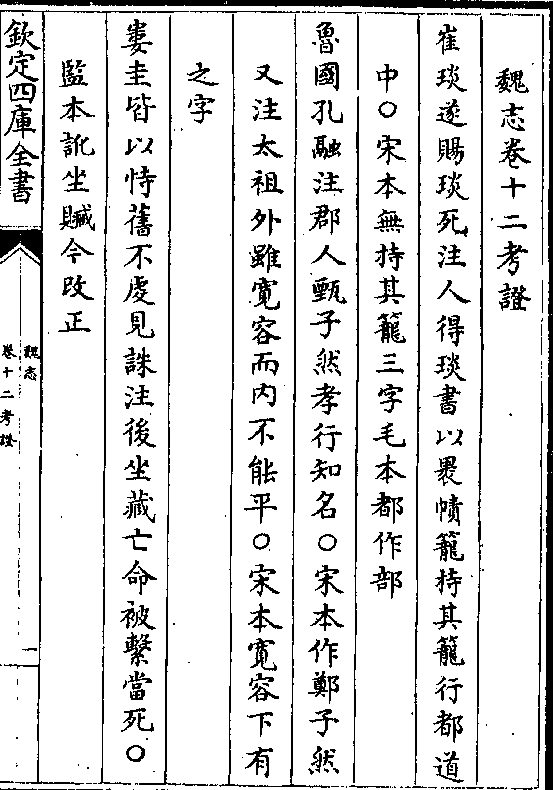 魏志卷十二考證
崔琰遂賜琰死注人得琰書以裹幘籠持其籠行都道
中○宋本無持其籠三字毛本都作部
魯國孔融注郡人甄子然孝行知名○宋本作鄭子然
又注太祖外雖寬容而内不能平○宋本寬容下有
之字
婁圭皆以恃舊不虔見誅注後坐藏亡命被繫當死○
監本訛坐贓今改正
欽定四庫全書
魏志
卷十二考證
一